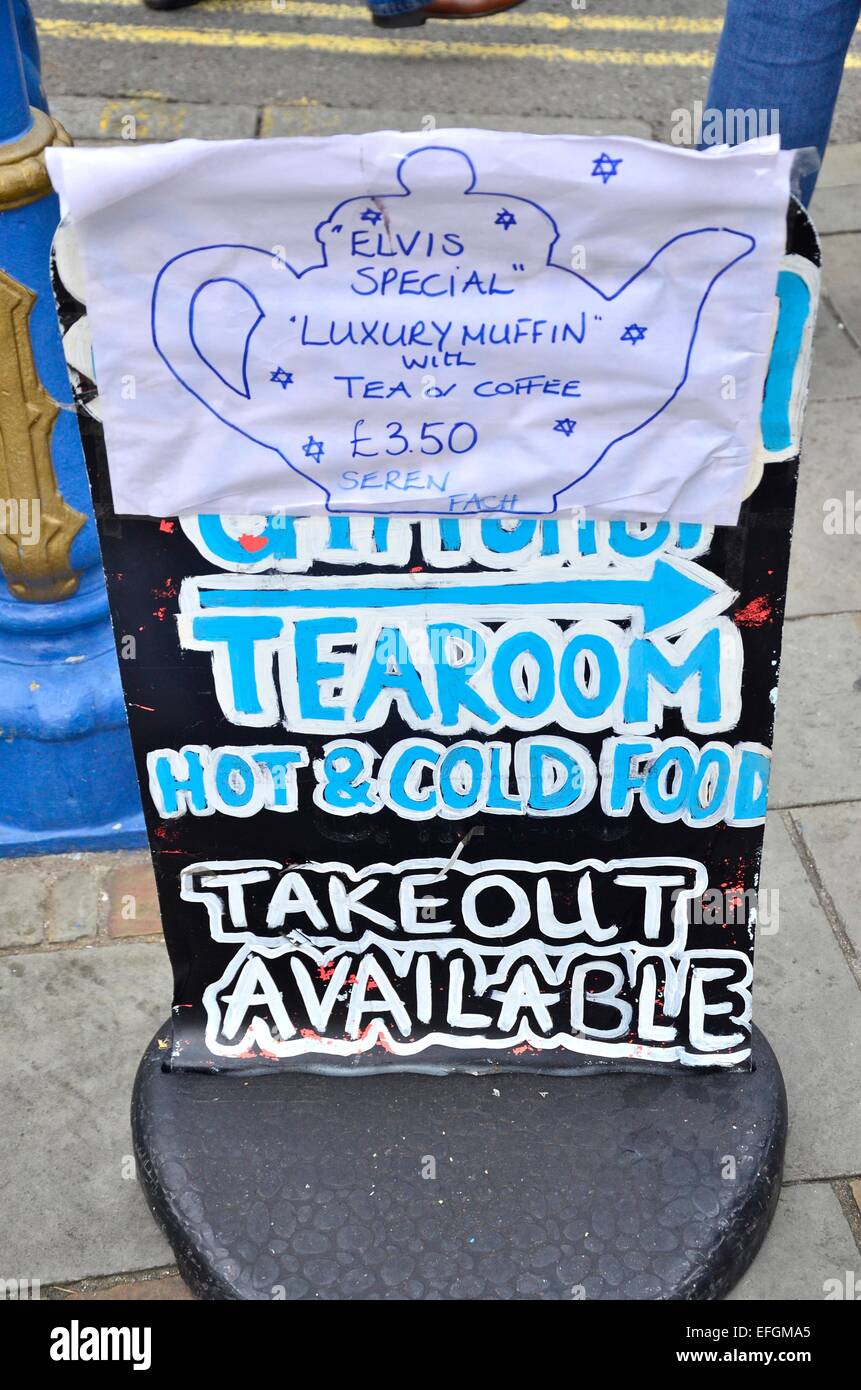 "ELVIS
SPECIAL"
"LUXURY MUFFIN"
with
TEA or COFFEE
£3.50
SEREN
FACH
TEAROOM
HOT & COLD FOOD
TAKEOUT
AVAILABLE
alamy stock photo
EFGMA5
www.alamy.com